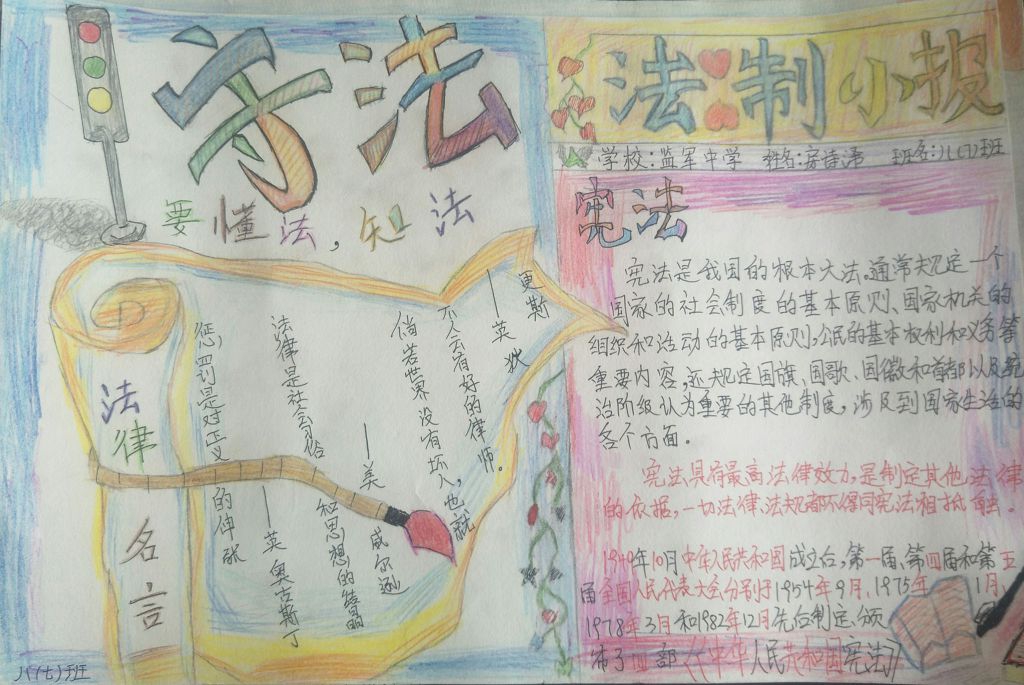 守法
要懂法，知法
法律
名言
惩罚是对正义的伸张
——英 奥古斯丁
法律是社会习俗
和思想的结晶
——美 威尔逊
倘若世界没有坏人，也就
不会有好的律师。
——英 狄
更斯
八(七)班
法制小报
学校：监军中学 姓名： 班名：八(7)班
宪法
宪法是我国的根本大法。通常规定一个
国家的社会制度的基本原则、国家机关的
组织和活动的基本原则，公民的基本权利和义务等
重要内容，还规定国旗、国歌、国徽和首都以及统
治阶级认为重要的其他制度，涉及到国家生活的
各个方面。
宪法具有最高法律效力，是制定其他法律
的依据，一切法律、法规都不得同宪法相抵触。
1949年10月中华人民共和国成立后，第一届、第四届和第五
届全国人民代表大会分别于1954年9月、1975年1月、
1978年3月和1982年12月先后制定颁
布了四部《中华人民共和国宪法》